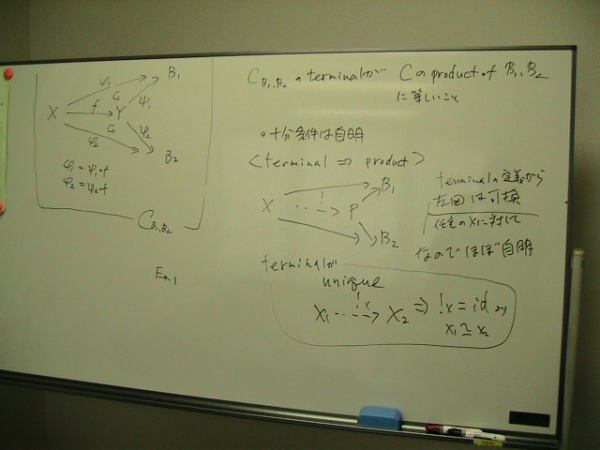 B₁
φ₁
X f Y ψ₁
G
G
φ₂ ψ₂
B₂
φ₁ = ψ₁∘f
φ₂ = ψ₂∘f
C_{B₁,B₂}
Ex 1
C_{B₁,B₂}のterminalが Cのproduct of B₁, B₂
に等しいこと
○十分条件は自明
<terminal ⇒ product>
B₁
X ! P
B₂
terminalの定義から
左図は可換
任意のXに対して
なのでほぼ自明
terminalが
unique
X₁ ⇢ X₂ ⇒ !x = id より
X₁ ≃ X₂